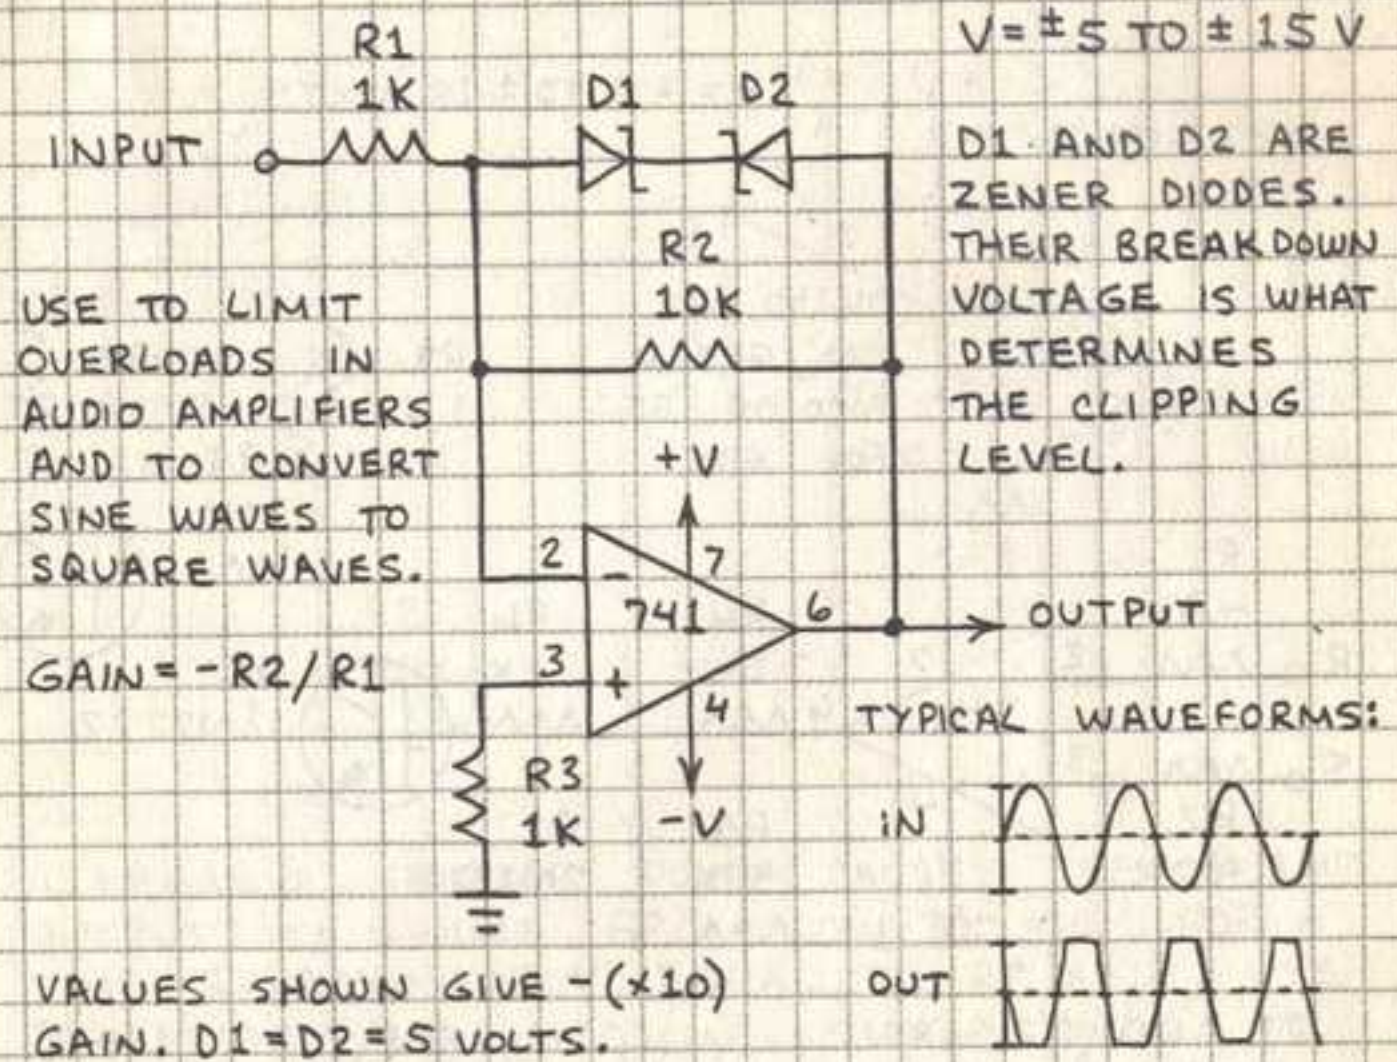 V = ±5 TO ± 15 V
R1
1K
D1
D2
INPUT
D1 AND D2 ARE
ZENER DIODES.
THEIR BREAKDOWN
VOLTAGE IS WHAT
DETERMINES
THE CLIPPING
LEVEL.
R2
10K
USE TO LIMIT
OVERLOADS IN
AUDIO AMPLIFIERS
AND TO CONVERT
SINE WAVES TO
SQUARE WAVES.
+V
2
-
7
741
6
OUTPUT
GAIN = -R2/R1
3
+
4
TYPICAL WAVEFORMS:
R3
1K
-V
IN
OUT
VALUES SHOWN GIVE -(x10)
GAIN. D1 = D2 = 5 VOLTS.